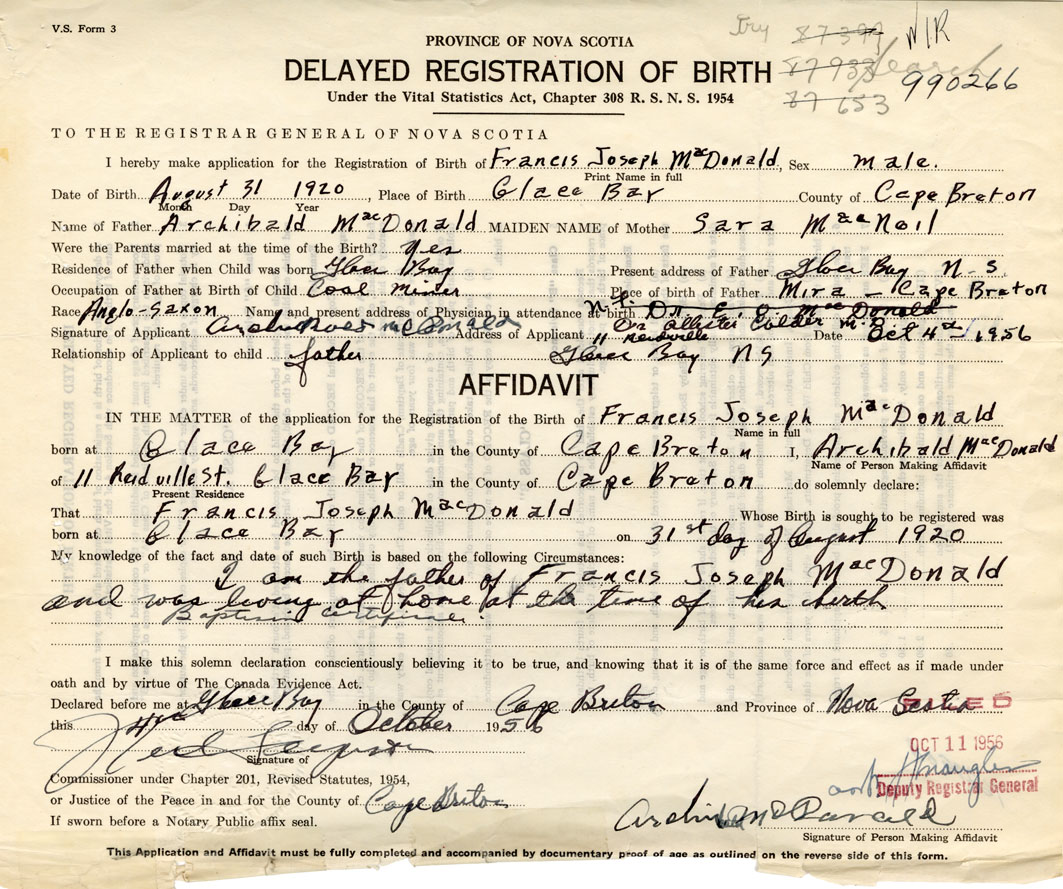 V.S. Form 3
Try 87397 NIR
PROVINCE OF NOVA SCOTIA
DELAYED REGISTRATION OF BIRTH 87933 Search
Under the Vital Statistics Act, Chapter 308 R. S. N. S. 1954 87653 990266
TO THE REGISTRAR GENERAL OF NOVA SCOTIA
I hereby make application for the Registration of Birth of Francis Joseph MacDonald, Sex male.
Print Name in full
Date of Birth August 31 1920, Place of Birth Glace Bay County of Cape Breton
Month Day Year
Name of Father Archibald MacDonald MAIDEN NAME of Mother Sara MacNeil
Were the Parents married at the time of the Birth? Yes
Residence of Father when Child was born Glace Bay Present address of Father Glace Bay N-S
Occupation of Father at Birth of Child Coal Miner Place of birth of Father Mira - Cape Breton
Race Anglo-Saxon Name and present address of Physician in attendance at birth Dr. MacDonald
Dr Calder
Signature of Applicant Archibald McDonald Address of Applicant 11 Reidville Date Oct 4th 1956
Relationship of Applicant to child father Glace Bay NS
AFFIDAVIT
IN THE MATTER of the application for the Registration of the Birth of Francis Joseph MacDonald
Name in full
born at Glace Bay in the County of Cape Breton I, Archibald MacDonald
Name of Person Making Affidavit
of 11 Reidville St. Glace Bay in the County of Cape Breton do solemnly declare:
Present Residence
That Francis Joseph MacDonald Whose Birth is sought to be registered was
born at Glace Bay on 31st day of August 1920
My knowledge of the fact and date of such Birth is based on the following Circumstances:
I am the father of Francis Joseph MacDonald
and was living at home at the time of his birth
Baptism certificate.
I make this solemn declaration conscientiously believing it to be true, and knowing that it is of the same force and effect as if made under
oath and by virtue of The Canada Evidence Act.
Declared before me at Glace Bay in the County of Cape Breton and Province of Nova Scotia FILED
this 4th day of October 1956
OCT 11 1956
Neil Ferguson
Signature of
Commissioner under Chapter 201, Revised Statutes, 1954,
Deputy Registrar General
or Justice of the Peace in and for the County of Cape Breton
Archibald McDonald
If sworn before a Notary Public affix seal.
Signature of Person Making Affidavit
This Application and Affidavit must be fully completed and accompanied by documentary proof of age as outlined on the reverse side of this form.